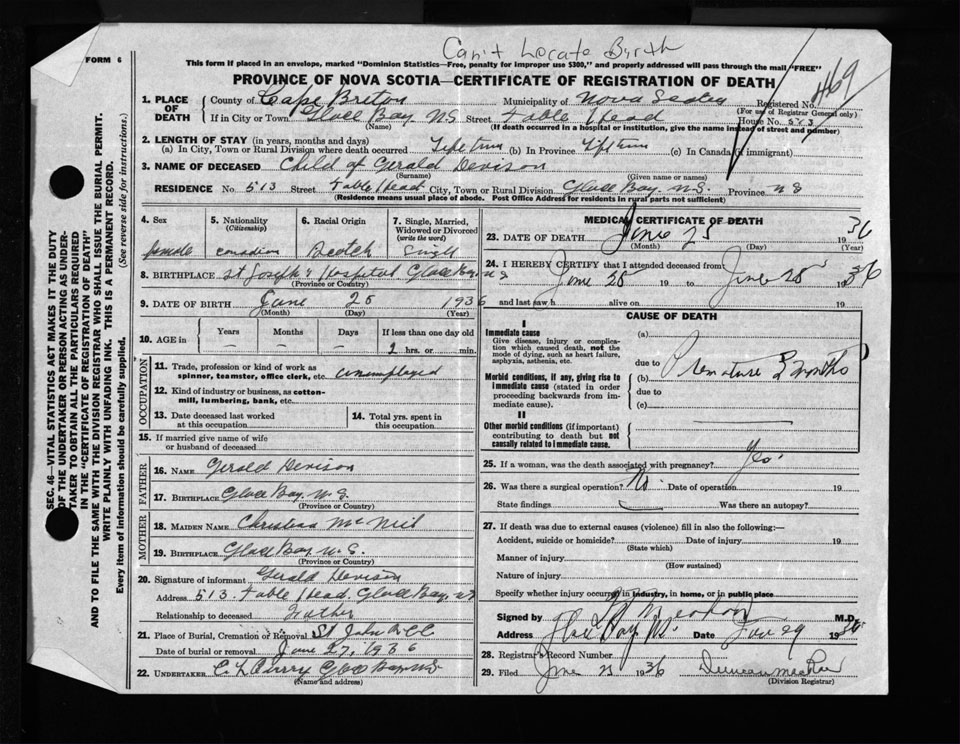 Can't Locate Birth
FORM 6
This form if placed in an envelope, marked "Dominion Statistics—Free, penalty for improper use $300," and properly addressed will pass through the mail "FREE"
PROVINCE OF NOVA SCOTIA—CERTIFICATE OF REGISTRATION OF DEATH
469
1. PLACE OF DEATH
County of Cape Breton Municipality of Nova Scotia Registered No.
(For use of Registrar General only)
If in City or Town Glace Bay N.S. Street Table Head House No. 513
(Name) (If death occurred in a hospital or institution, give the name instead of street and number)
2. LENGTH OF STAY (in years, months and days)
(a) In City, Town or Rural Division where death occurred Life time (b) In Province Life time (c) In Canada (if immigrant)
3. NAME OF DECEASED Child of Gerald Devison
(Surname) (Given name or names)
RESIDENCE No. 513 Street Table Head City, Town or Rural Division Glace Bay. N.S. Province N S
(Residence means usual place of abode. Post Office Address for residents in rural parts not sufficient)
4. Sex
female
5. Nationality (Citizenship)
canadian
6. Racial Origin
Scotch
7. Single, Married, Widowed or Divorced (write the word)
Single
8. BIRTHPLACE St Joseph's Hospital Glace Bay N S
(Province or Country)
9. DATE OF BIRTH June 25 1936
(Month) (Day) (Year)
10. AGE in
Years Months Days If less than one day old
— — — 2 hrs. or min.
OCCUPATION
11. Trade, profession or kind of work as spinner, teamster, office clerk, etc. unemployed
12. Kind of industry or business, as cotton-mill, lumbering, bank, etc.
13. Date deceased last worked at this occupation
14. Total yrs. spent in this occupation
15. If married give name of wife or husband of deceased
FATHER
16. NAME Gerald Devison
17. BIRTHPLACE Glace Bay. N.S.
(Province or Country)
MOTHER
18. MAIDEN NAME Christena McNeil
19. BIRTHPLACE Glace Bay. N.S.
(Province or Country)
20. Signature of informant Gerald Devison
Address 513. Table Head. Glace Bay. NS
Relationship to deceased Father
21. Place of Burial, Cremation or Removal St John
Date of burial or removal June 27, 1936
22. UNDERTAKER Glace Bay NS
(Name and address)
MEDICAL CERTIFICATE OF DEATH
23. DATE OF DEATH June 25 1936
(Month) (Day) (Year)
24. I HEREBY CERTIFY that I attended deceased from
June 25 19 to June 25 1936
and last saw h alive on 19
CAUSE OF DEATH
I
Immediate cause
Give disease, injury or complication which caused death, not the mode of dying, such as heart failure, asphyxia, asthenia, etc.
(a)
due to
Morbid conditions, if any, giving rise to immediate cause (stated in order proceeding backwards from immediate cause).
(b) Premature months
due to
(c)
II
Other morbid conditions (if important) contributing to death but not causally related to immediate cause.
25. If a woman, was the death associated with pregnancy? Yes.
26. Was there a surgical operation? No. Date of operation 19
State findings Was there an autopsy?
27. If death was due to external causes (violence) fill in also the following:—
Accident, suicide or homicide? Date of injury 19
(State which)
Manner of injury
(How sustained)
Nature of injury
Specify whether injury occurred in industry, in home, or in public place
Signed by M.D.
Address Glace Bay NS. Date 29 1936
28. Registrar's Record Number
29. Filed June 25 1936 Duncan MacRae
(Division Registrar)
SEC. 46—VITAL STATISTICS ACT MAKES IT THE DUTY OF THE UNDERTAKER OR PERSON ACTING AS UNDERTAKER TO OBTAIN ALL THE PARTICULARS REQUIRED IN THE "CERTIFICATE OF REGISTRATION OF DEATH"
AND TO FILE THE SAME WITH THE DIVISION REGISTRAR WHO SHALL ISSUE THE BURIAL PERMIT.
WRITE PLAINLY WITH UNFADING INK. THIS IS A PERMANENT RECORD.
Every item of information should be carefully supplied. (See reverse side for instructions.)